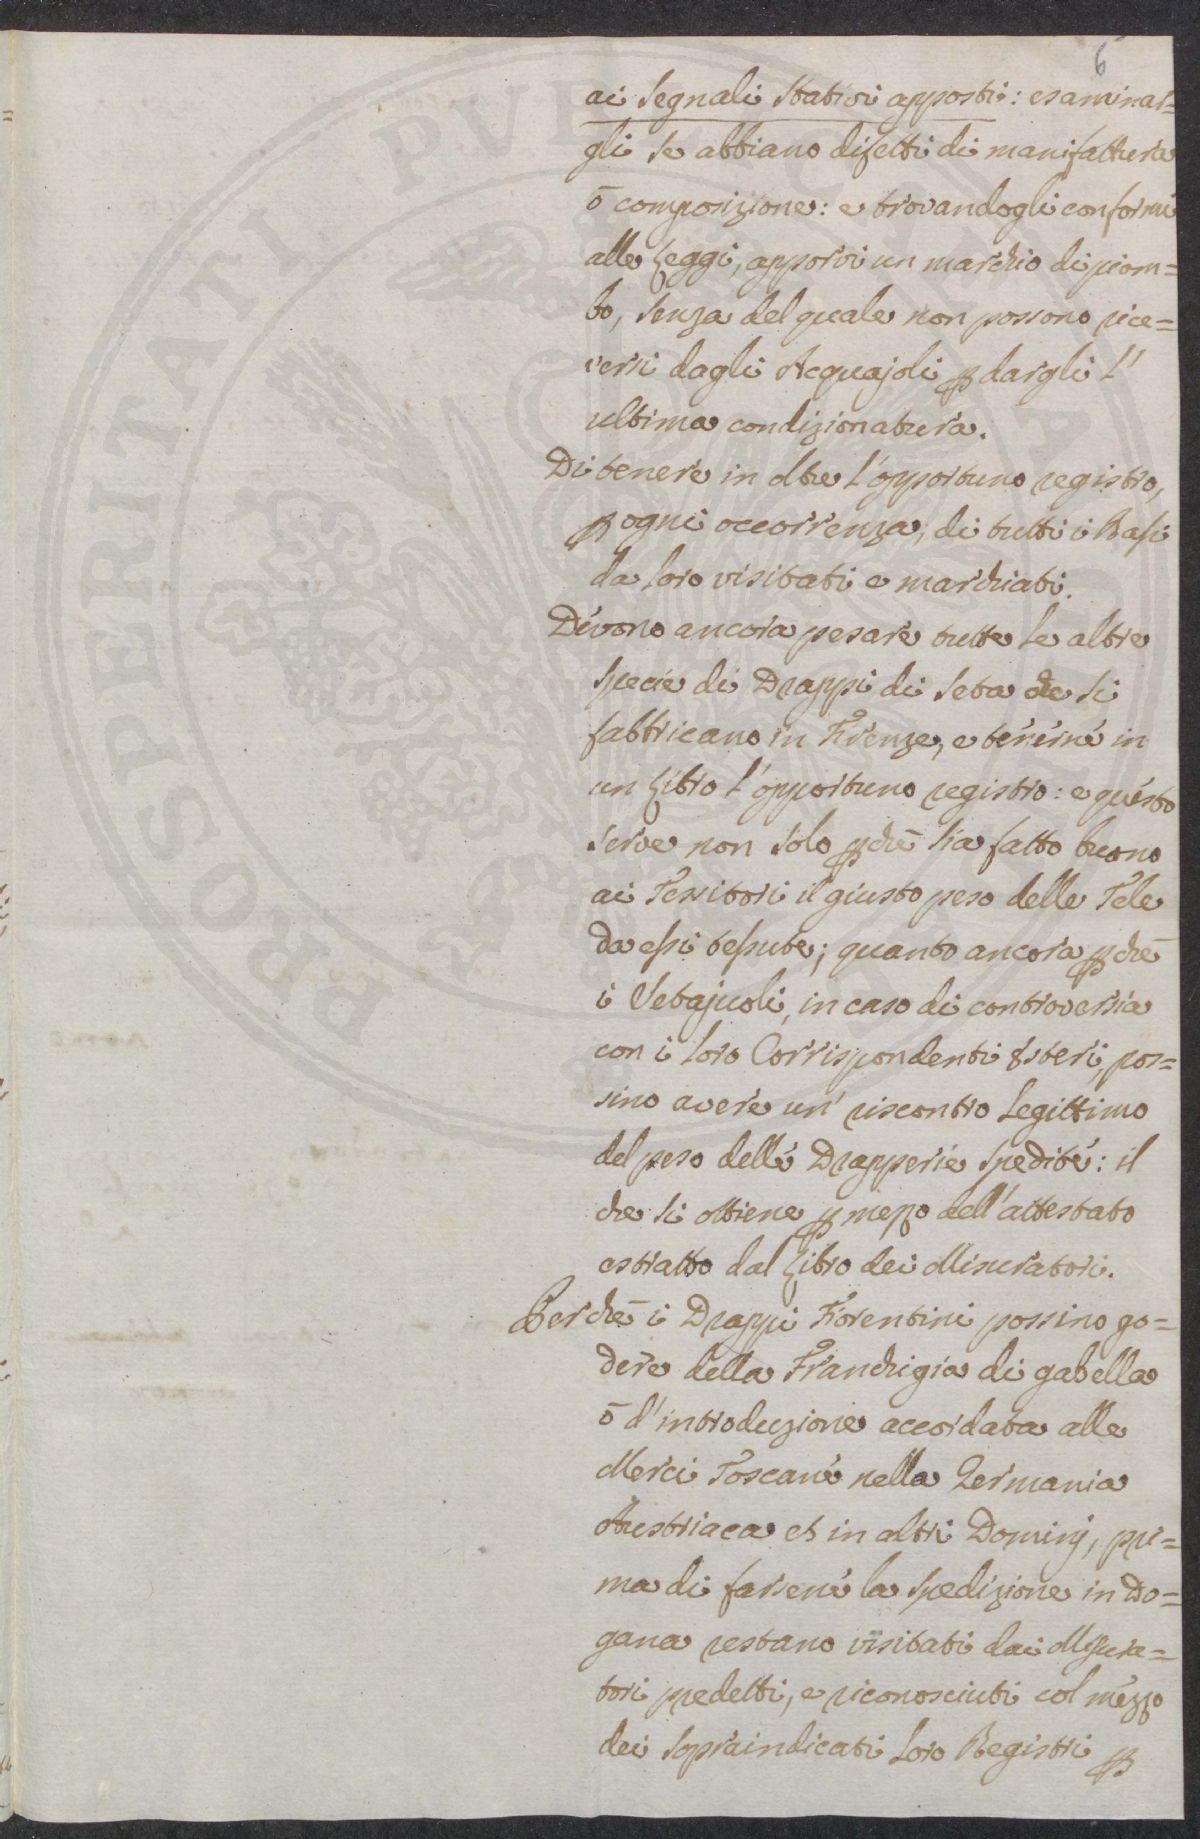 6
ai segnali stativi apposti: esaminar=
gli se abbiano difetti di manifattura
ō composizione: e trovandogli conformi
alle Leggi, apporvi un marchio di piom=
bo, senza del quale non possono rice=
versi dagli Acquajoli ꝑ dargli l'
ultima condizionatura.
Di tenere in oltre l'opportuno registro,
ꝑ ogni occorrenza, di tutti i Rasi
da loro visitati e marchiati.
Devono ancora pesare tutte le altre
specie di Drappi di seta che si
fabbricano in Firenze, e tenerne in
un Libro l'opportuno registro: e questo
serve non solo ꝑchè sia fatto buono
ai Tessitori il giusto peso delle Tele
da essi tessute; quanto ancora ꝑchè
i Setajuoli, in caso di controversia
con i loro Corrispondenti Esteri, pos=
sino avere un' riscontro legittimo
del peso delle Drapperie spedite: il
che si ottiene ꝑ mezzo dell'attestato
estratto dal Libro dei Misuratori.
Perchè i Drappi Fiorentini possino go=
dere della Franchigia di gabella
ō d'introduzione accordata alle
Merci Toscane nella Germania
Austriaca et in altri Dominj, pri=
ma di farsene la spedizione in Do=
gana restano visitati dai Misura=
tori predetti, e riconosciuti col mezzo
dei sopraindicati loro Registri ꝑ
PROSPERITATI PVBLICAE